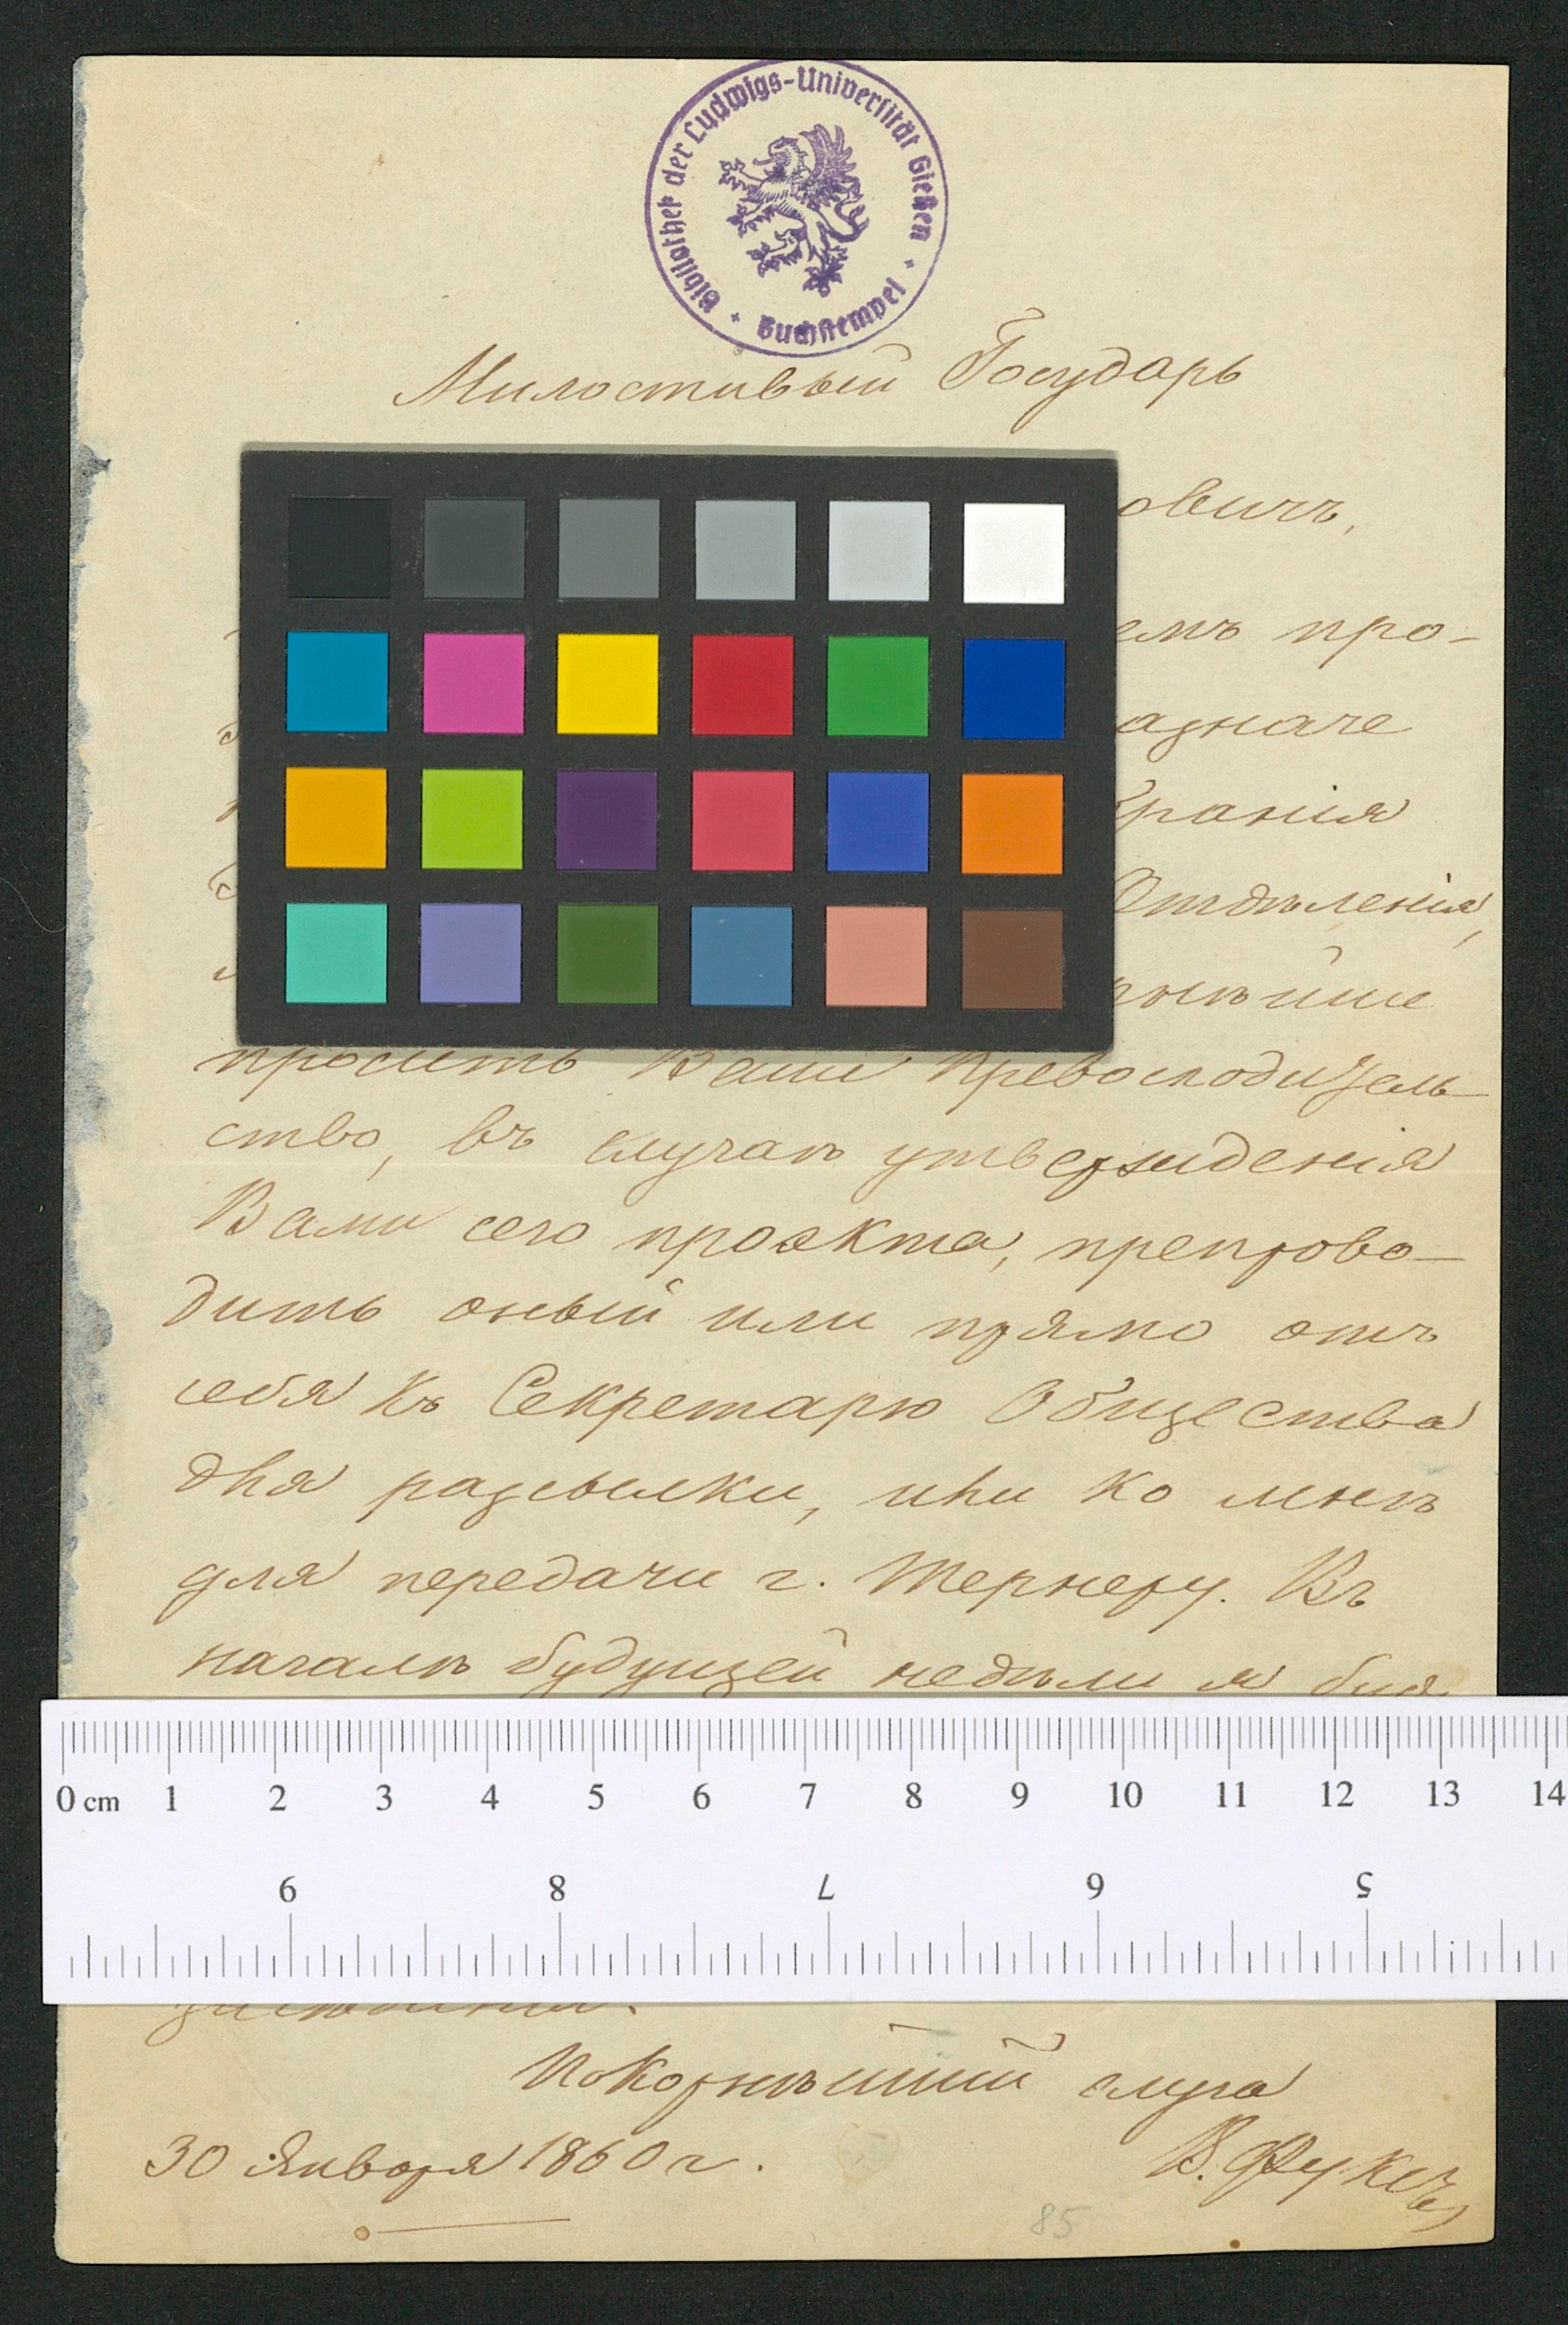 Bibliothek der Ludwigs-Universität Gießen
Buchstempel
Милостивый Государь
овичъ,
емъ про-
азначе
бранія
Отдѣленія,
рнѣйше
просить Ваше Превосходитель-
ство, въ случаѣ утвержденія
Вами сего проэкта, препрово-
дить оный или прямо отъ
себя къ Секретарю Общества
для разсылки, или ко мнѣ
для передачи г. Тернеру. Въ
началѣ будущей недѣли я
0 cm 1 2 3 4 5 6 7 8 9 10 11 12 13 14
9 8 7 6 5
Покорнѣйшій слуга
30 Января 1860 г.
В. Фуксъ
85